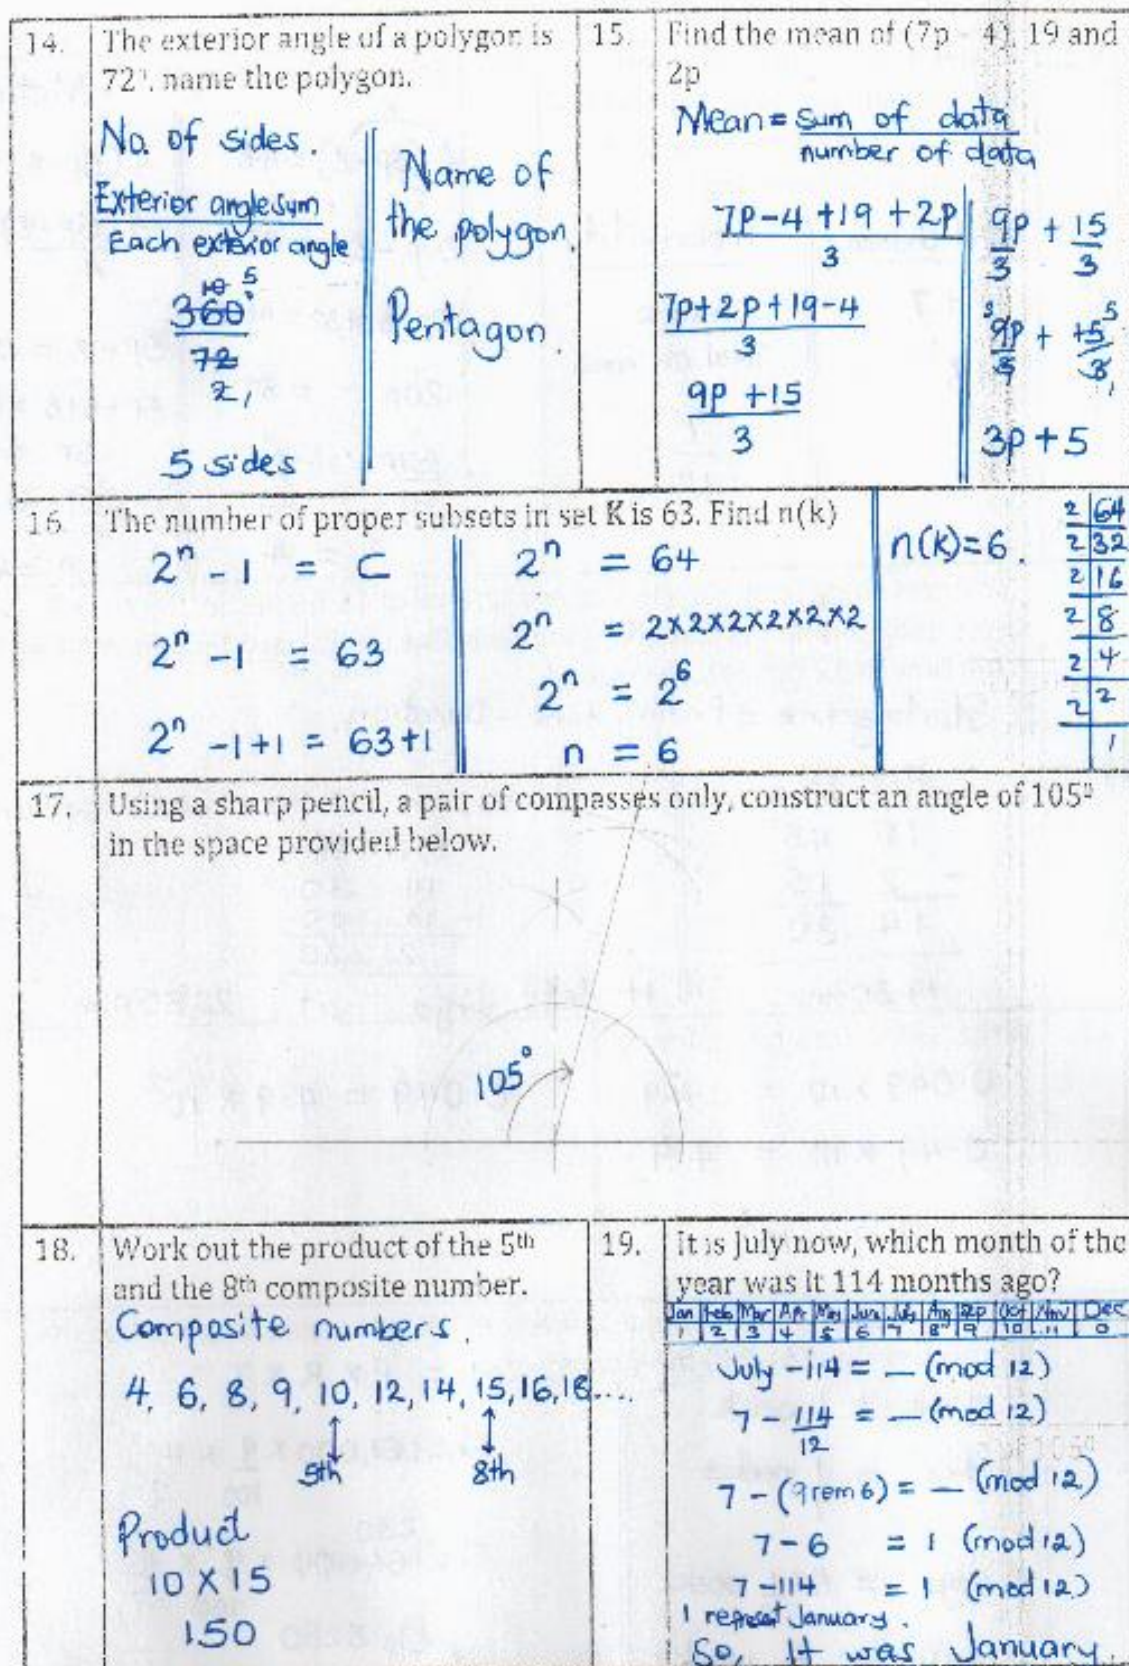 14. The exterior angle of a polygon is
72°, name the polygon.
No. of sides.
Exterior angle sum
Each exterior angle
10 5
360°
72
2,
5 sides
Name of
the polygon
Pentagon.
15. Find the mean of (7p - 4), 19 and
2p
Mean = sum of data
number of data
7p-4 +19 + 2p
3
7p+2p+19-4
3
9p +15
3
9p + 15
3 3
3 9p + 15 5
3 3,
3p + 5
16. The number of proper subsets in set K is 63. Find n(k)
2ⁿ - 1 = C
2ⁿ - 1 = 63
2ⁿ - 1 + 1 = 63+1
2ⁿ = 64
2ⁿ = 2×2×2×2×2×2
2ⁿ = 2⁶
n = 6
n(k)=6.
2 64
2 32
2 16
2 8
2 4
2 2
1
17. Using a sharp pencil, a pair of compasses only, construct an angle of 105⁰
in the space provided below.
105°
18. Work out the product of the 5th
and the 8th composite number.
Composite numbers.
4, 6, 8, 9, 10, 12, 14, 15, 16, 18....
5th 8th
Product
10 X 15
150
19. It is July now, which month of the
year was it 114 months ago?
Jan Feb Mar Apr May Jun July Aug Sep Oct Nov Dec
1 2 3 4 5 6 7 8 9 10 11 0
July - 114 = — (mod 12)
7 - 114 = — (mod 12)
12
7 - (9 rem 6) = — (mod 12)
7 - 6 = 1 (mod 12)
7 - 114 = 1 (mod 12)
1 represent January.
So, It was January.